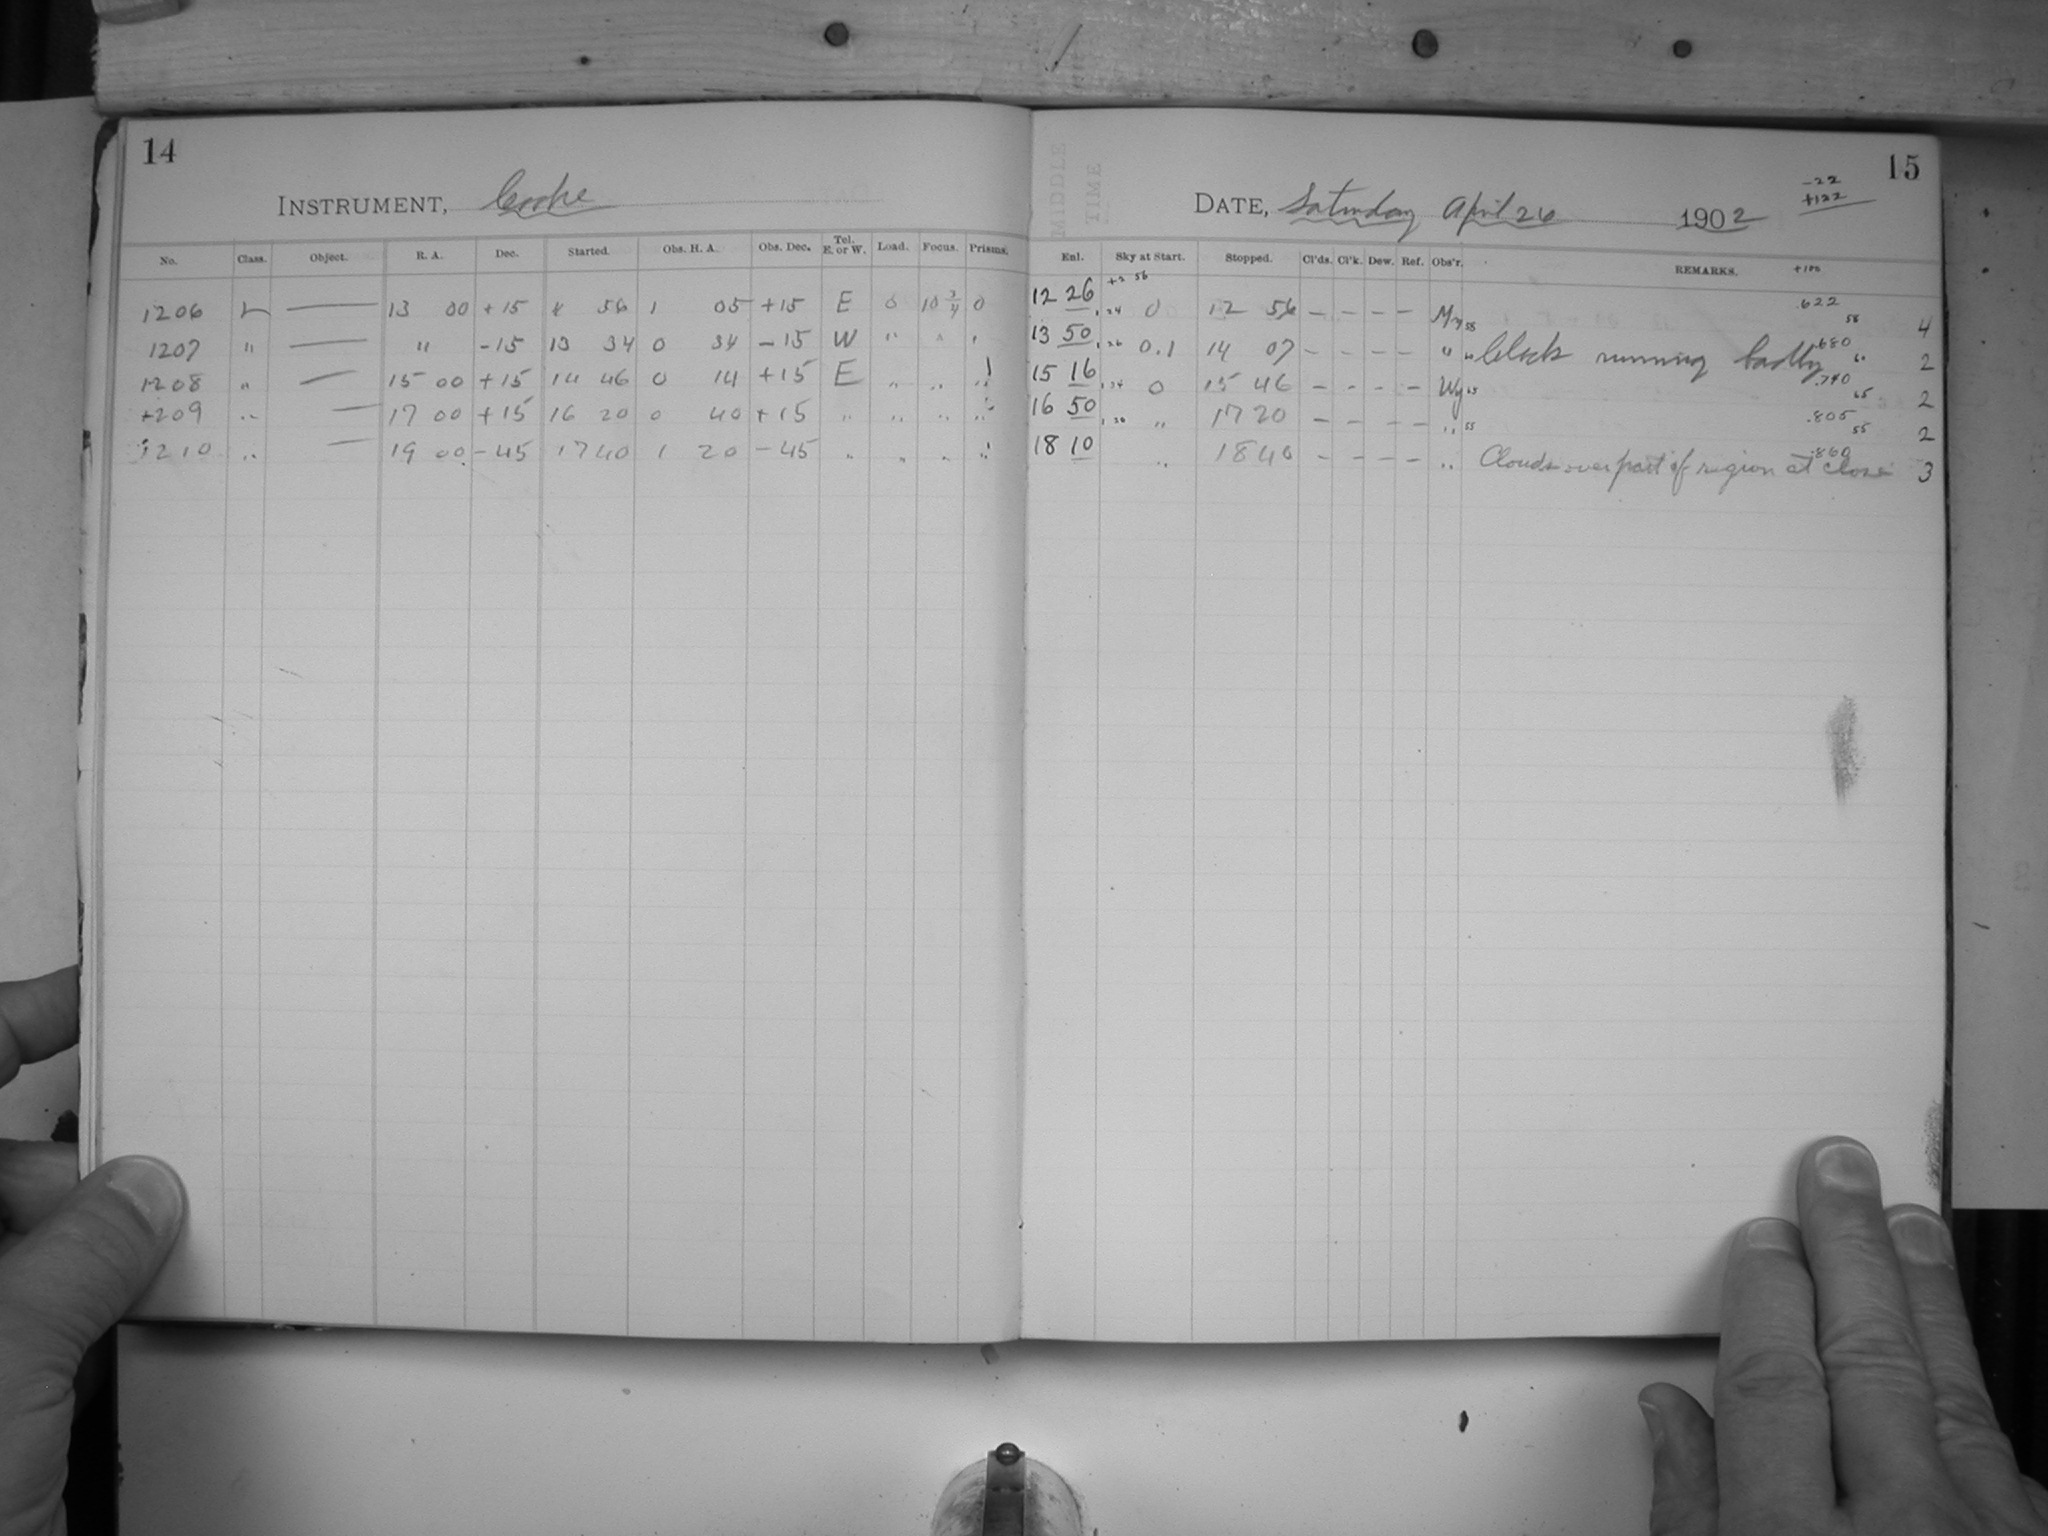 14
INSTRUMENT, Cooke
No. Class. Object. R. A. Dec. Started. Obs. H. A. Obs. Dec. Tel. E. or W. Load. Focus. Prisms.
1206 L — 13 00 +15 56 1 05 +15 E 0 10 3/4 0
1207 " — " -15 13 34 0 34 -15 W " " "
1208 " — 15 00 +15 14 46 0 14 +15 E " "
1209 " — 17 00 +15 16 20 0 40 +15 " " " "
1210 " — 19 00 -45 17 40 1 20 -45 " " " "
MIDDLE TIME
15
-22
+122
DATE, Saturday April 26 1902
Enl. Sky at Start. Stopped. Cl'ds. Cl'k. Dew. Ref. Obs'r. REMARKS. +100
+2 56
12 26 .24 0 12 56 — — — — 58 .622 58 4
13 50 .26 0.1 14 07 — — — — " Clock running badly .680 60 2
15 16 .34 0 15 46 — — — — Wy 65 .740 65 2
16 50 .30 " 17 20 — — — — " 55 .805 55 2
18 10 " 18 40 — — — — " Clouds over part of region at close .860 3